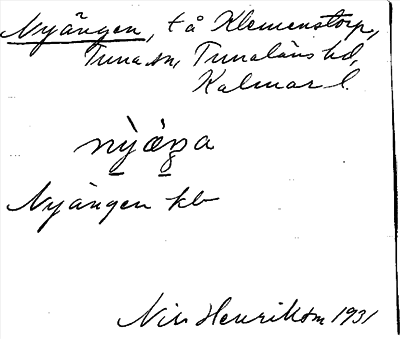 Nyängen, t å Klemenstorp,
Tuna sn, Tunaläns hd,
Kalmar l.
nỳæ̀ŋa
Nyängen kb
Nils Henriksson 1931